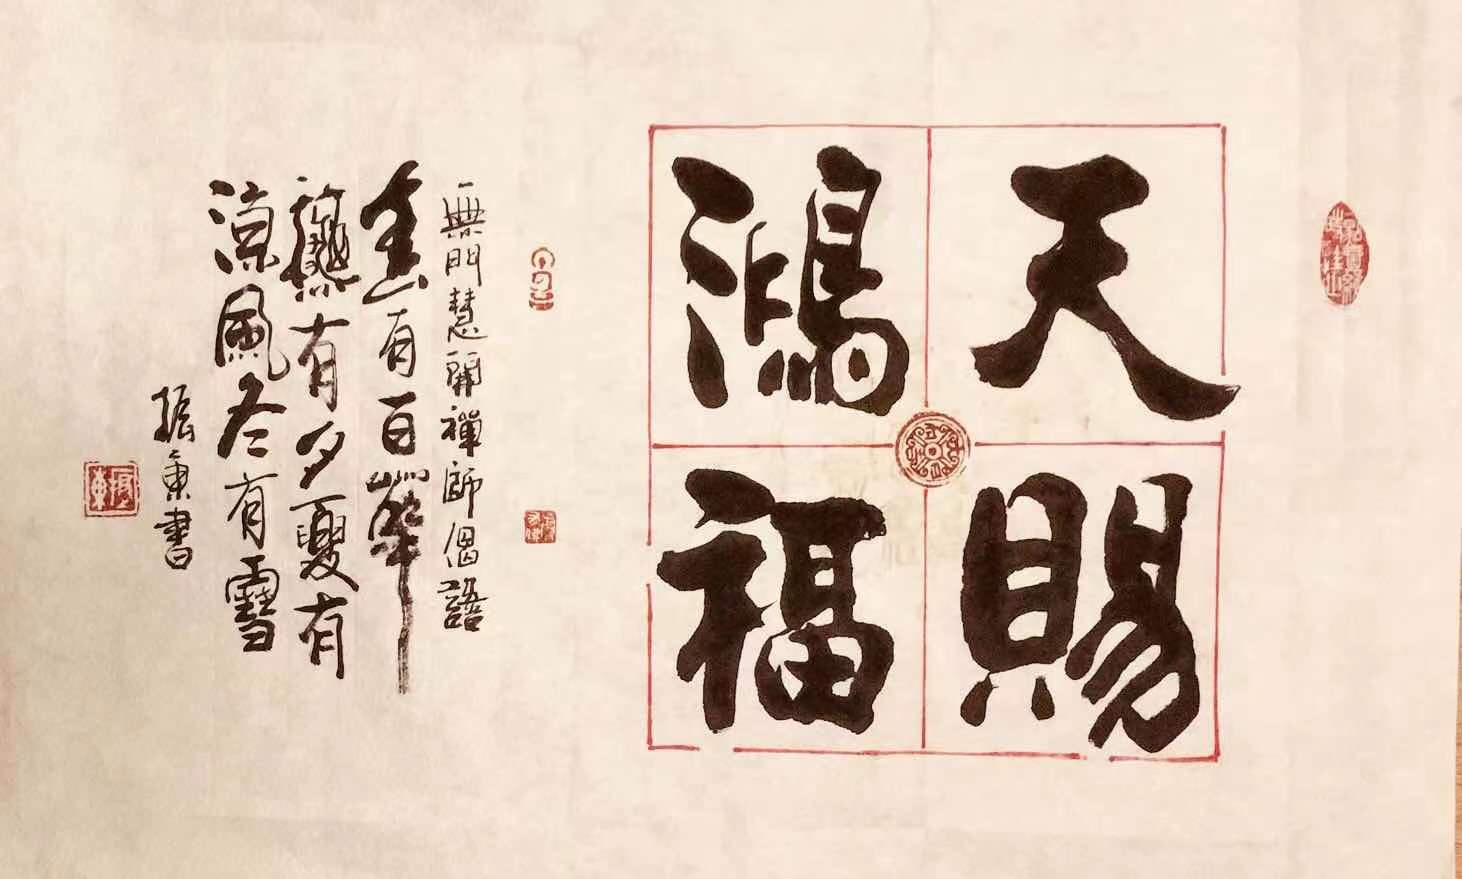 天賜
鴻福
無門慧開禪師偈語
春有百華
龝有月夏有
涼風冬有雪
振東書
振東